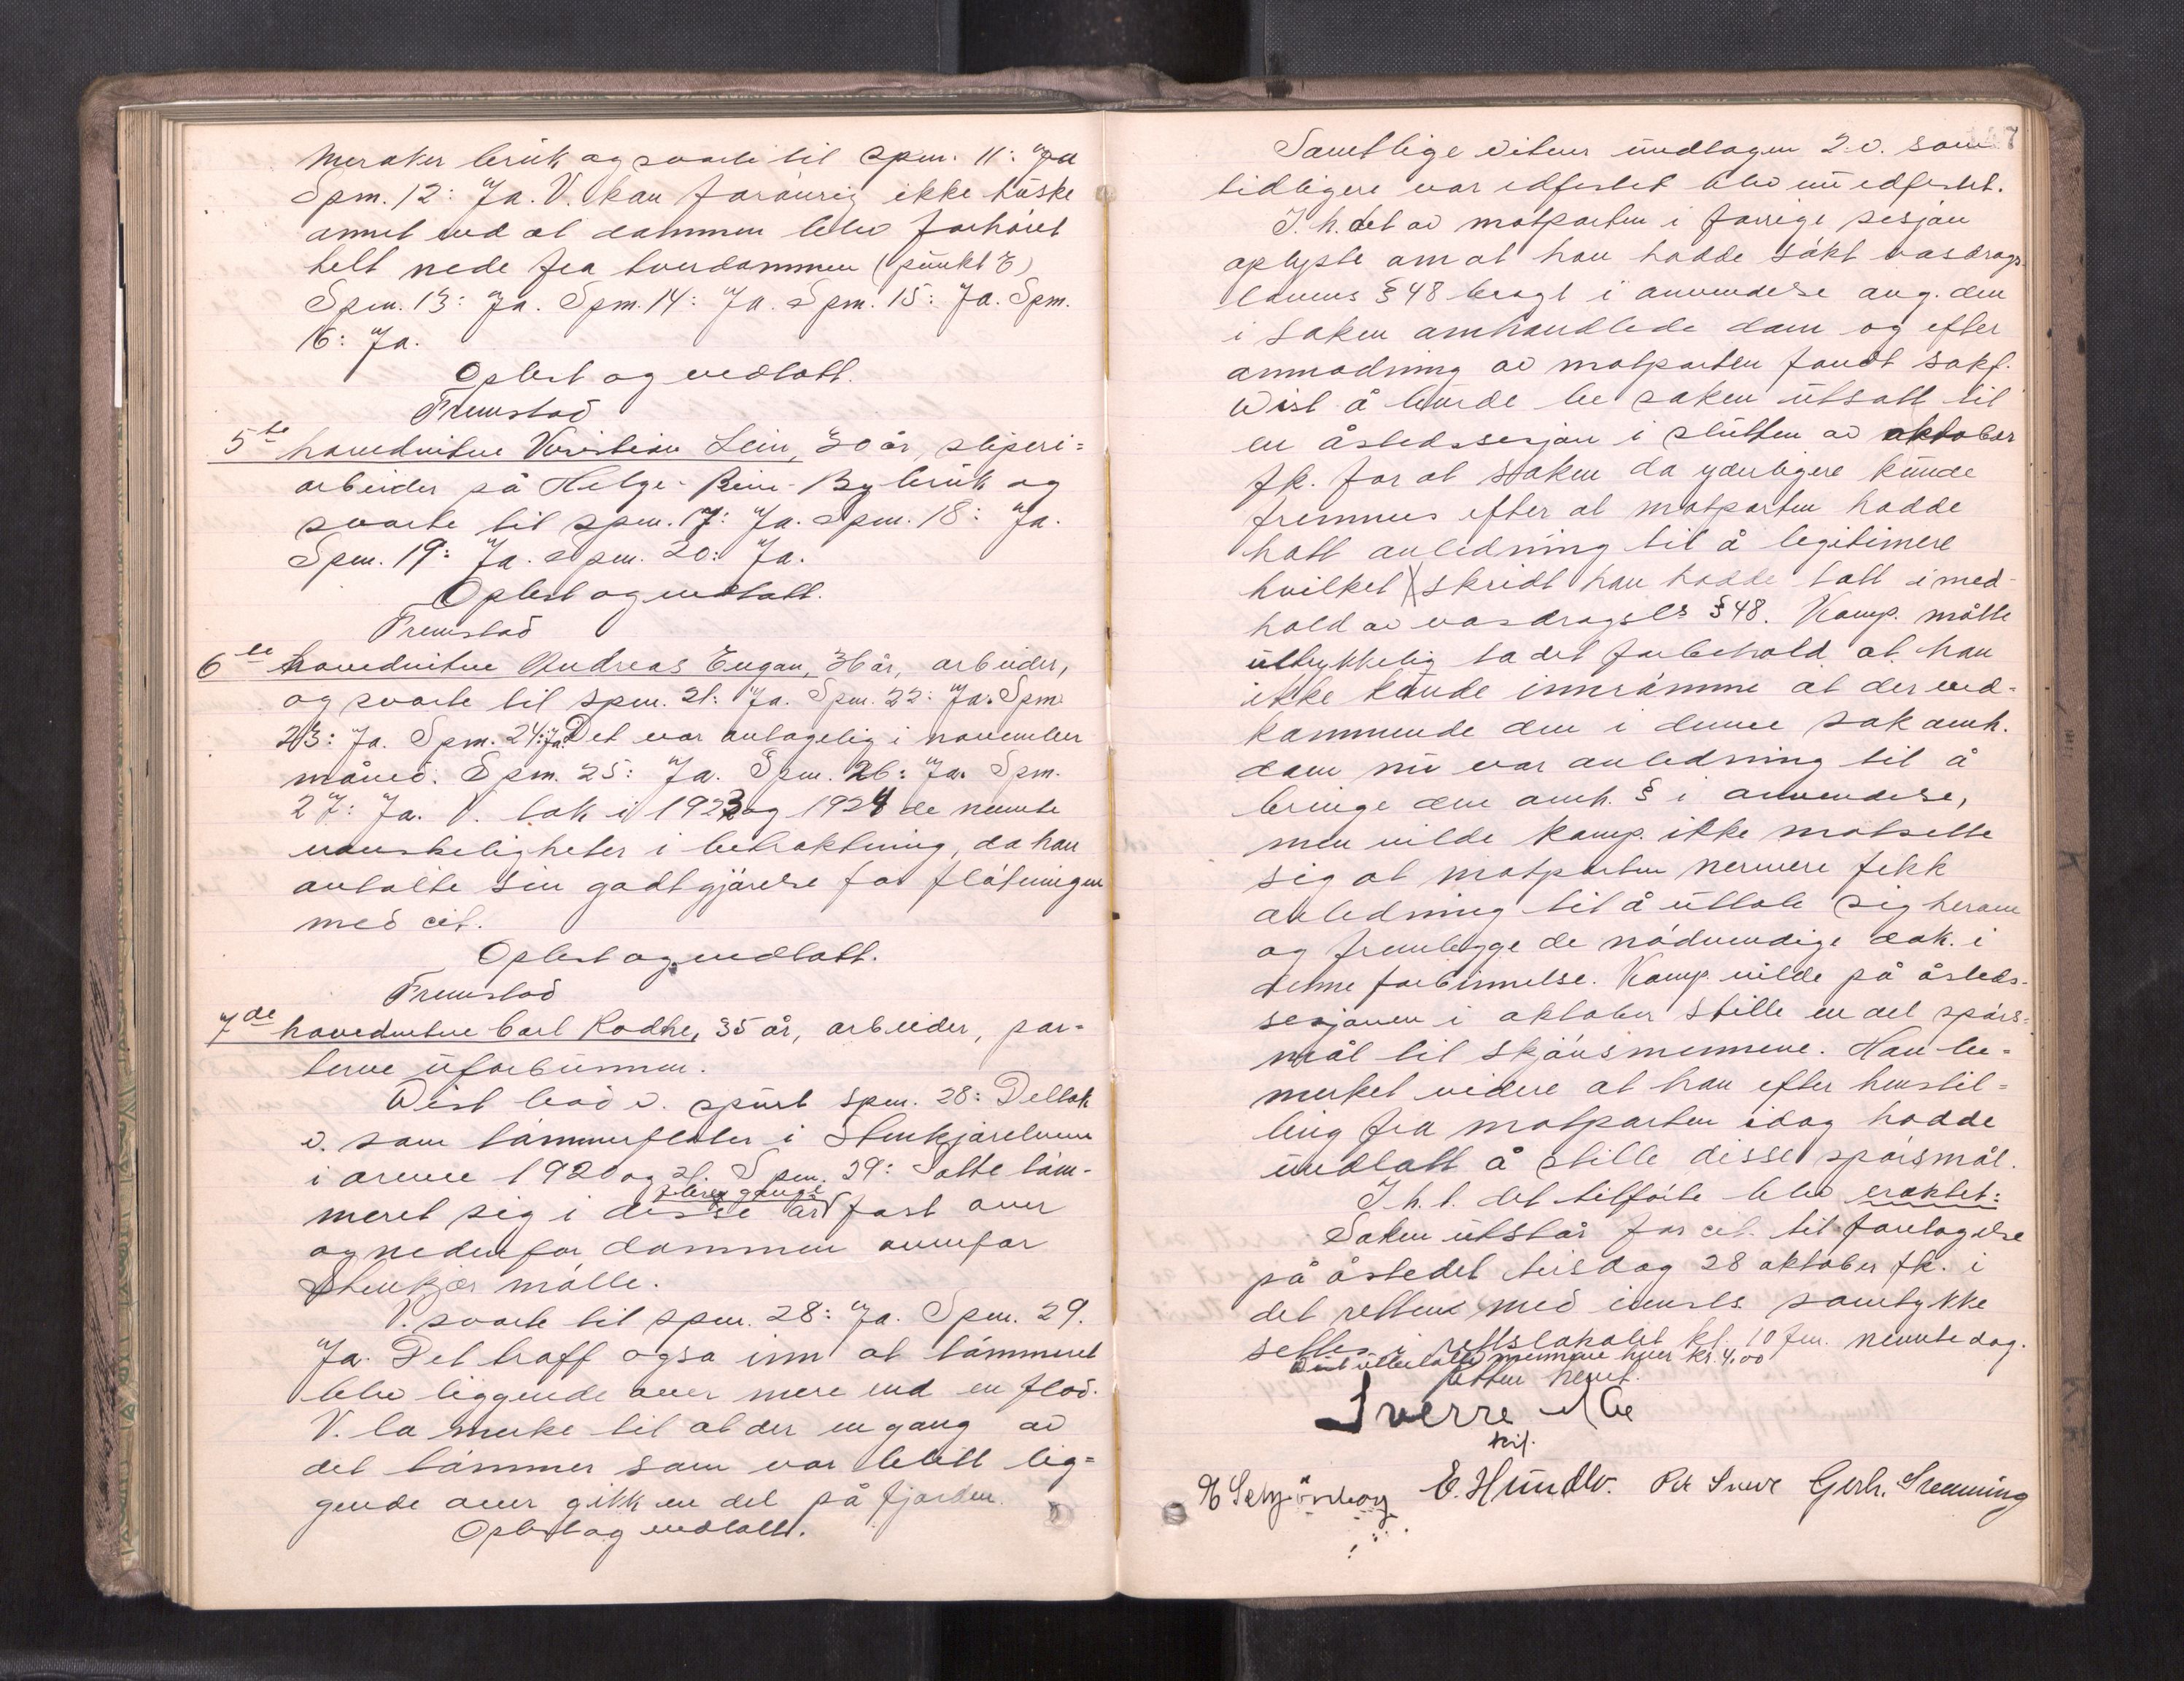 Meraker bruk og svarte til spm. 11: Ja
Spm. 12: Ja. V. kan forøvrig ikke huske
annet end at dammen blev forhøiet
helt nede fra tverdammen (punkt E)
Spm. 13: Ja. Spm. 14: Ja. Spm. 15: Ja. Spm.
16: Ja.
Oplest og vedtatt.
Fremstod
5te hovedvitne Kristian Lein, 30 år, sliperi=
arbeider på Helge-Rein-By bruk og
svarte til spm. 17: Ja. Spm. 18: Ja.
Spm. 19: Ja. Spm. 20: Ja.
Oplest og vedtatt.
Fremstod
6te hovedvitne Andreas Engan, 36 år, arbeider,
og svarte til spm. 21: Ja. Spm. 22: Ja. Spm
23: Ja. Spm. 24: Ja. Det var antagelig i november
måned. Spm. 25: Ja. Spm. 26: Ja. Spm.
27: Ja. V. tok i 1923 og 1924 de nevnte
vanskeligheter i betraktning, da han
avtalte sin godtgjørelse for fløtningen
med cit.
Oplest og vedtatt.
Fremstod
7de hovedvitne Carl Rodhe, 35 år, arbeider, par-
terne uforbunnen.
Wist bad v. spurt spm. 28: Deltok
v. som tømmerfløter i Stenkjærelven
i årene 1920 og 21. Spm. 29: Satte tøm-
flere gange
meret sig i disse år fast over
og nedenfor dammen ovenfor
Stenkjær mølle.
V. svarte til spm. 28: Ja. Spm. 29.
Ja. Det traff også inn at tømmeret
blev liggende over mere end en flod.
V. la merke til at der en gang av
det tømmer som var blitt lig=
gende over gikk en del på fjorden.
Oplest og vedtatt.
Samtlige vitner undtagen 2 v. som
tidligere var edfestet blev nu edfestet.
I. h. det av motparten i forrige sesjon
oplyste om at han hadde søkt vasdrags-
lovens § 48 bragt i anvendelse ang. den
i saken omhandlede dam og efter
anmodning av motparten fandt sakf.
Wist å burde be saken utsatt til
en åstedssesjon i slutten av oktober
fk. for at saken da yderligere kunde
fremmes efter at motparten hadde
hatt anledning til å legitimere
hvilket skridt han hadde tatt i med-
hold av vasdragsls § 48. Komp. måtte
uttrykkelig ta det forbehold at han
ikke kunde innrømme at der ved-
kommende den i denne sak omh.
dam nu var anledning til å
bringe den omh. § i anvendelse,
men vilde komp. ikke motsette
sig at motparten nermere fikk
anledning til å uttale sig herom
og fremlegge de nødvendige dok. i
denne forbinnelse. Komp. vilde på åsteds-
sesjonen i oktober stille en del spørs=
mål til skjønsmennene. Han be=
merket videre at han efter henstil=
ling fra motparten idag hadde
undlatt å stille disse spørsmål.
I. h. t. det tilførte blev eraktet:
Saken utstår for cit. til foretagelse
på åstedet tirsdag 28 oktober fk. i
det retten med innsts. samtykke
settes i rettslokalet kl. 10 fm. nevnte dag.
mennene hver kr. 4.00
Retten hevet.
Sverre
E. Hundlv.